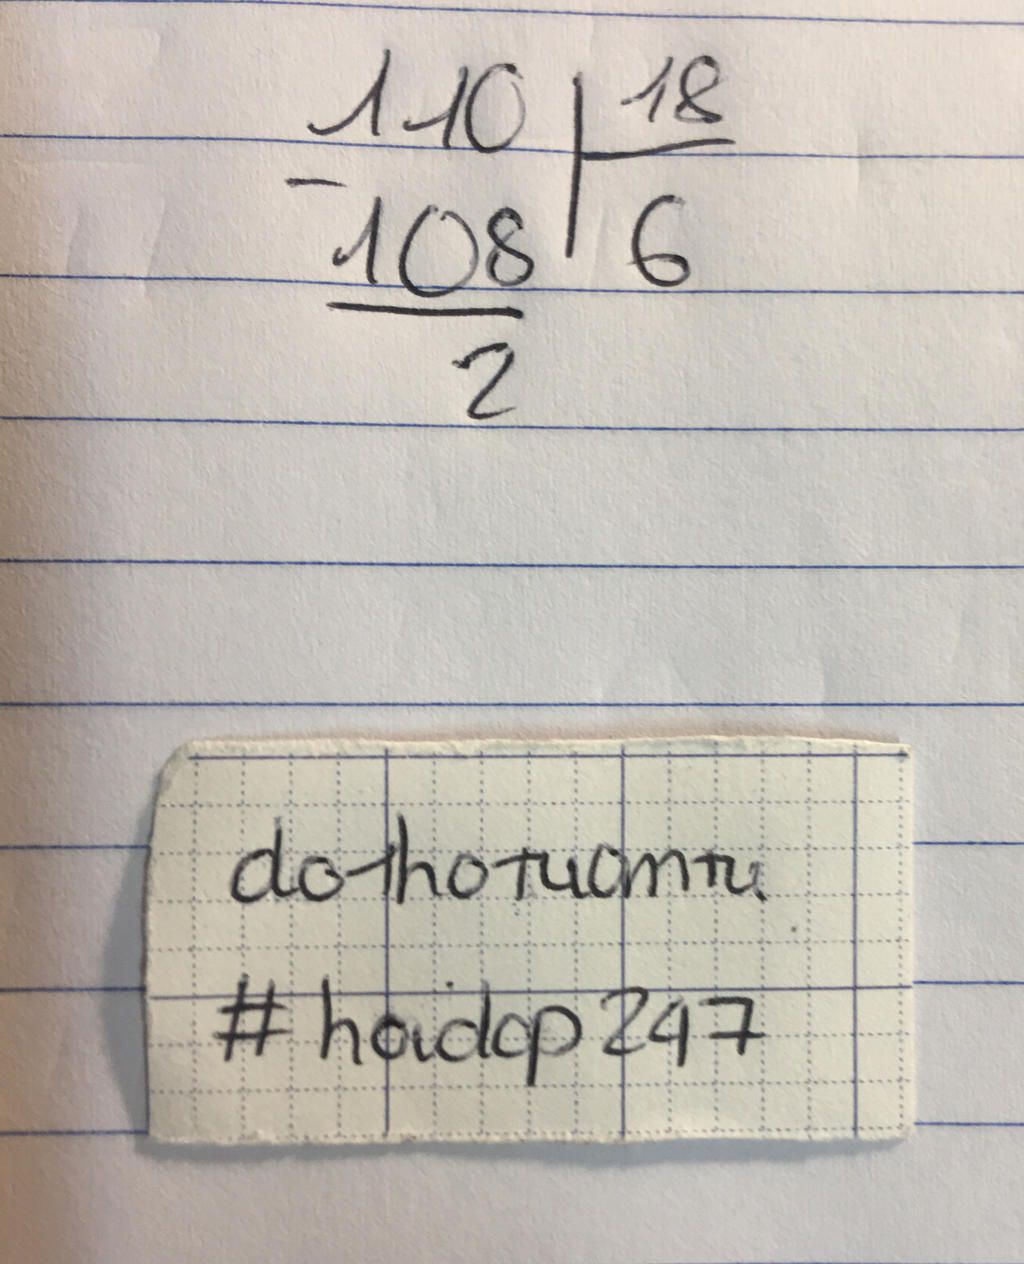 110 | 18
- 108 6
2
dothotuanti
#hoidap247